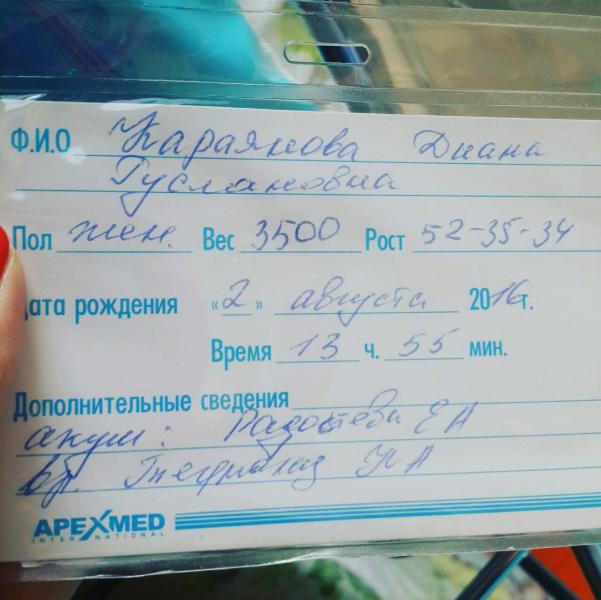 Ф.И.О Караякова Диана
Руслановна
Пол жен. Вес 3500 Рост 52-35-34
Дата рождения «2» августа 2016г.
Время 13 ч. 55 мин.
Дополнительные сведения
акуш: ЕА
вр. НА
APEXMED
INTERNATIONAL